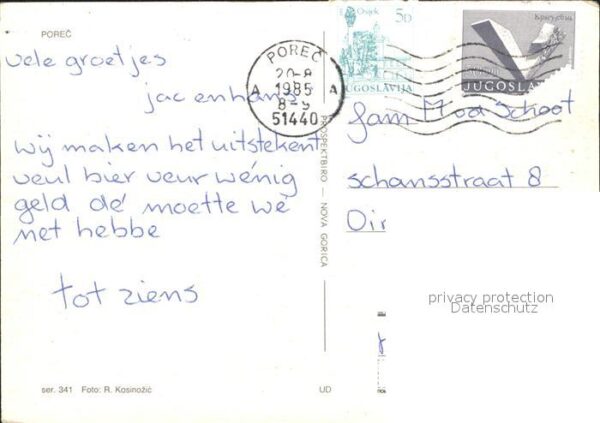 POREČ
vele groetjes
jac en hans
wij maken het uitstekent
veul bier veur wénig
geld dé moette wé
net hebbe
tot ziens
ser. 341 Foto: R. Kosinožić
UD
PROSPEKTBIRO — NOVA GORICA
POREČ
20-8
1985
8-9
A A
51440
Osijek
5D
JUGOSLAVIJA
Kragujevac
JUGOSLA
fam M vd Schoot
schansstraat 8
Oir
privacy protection
Datenschutz